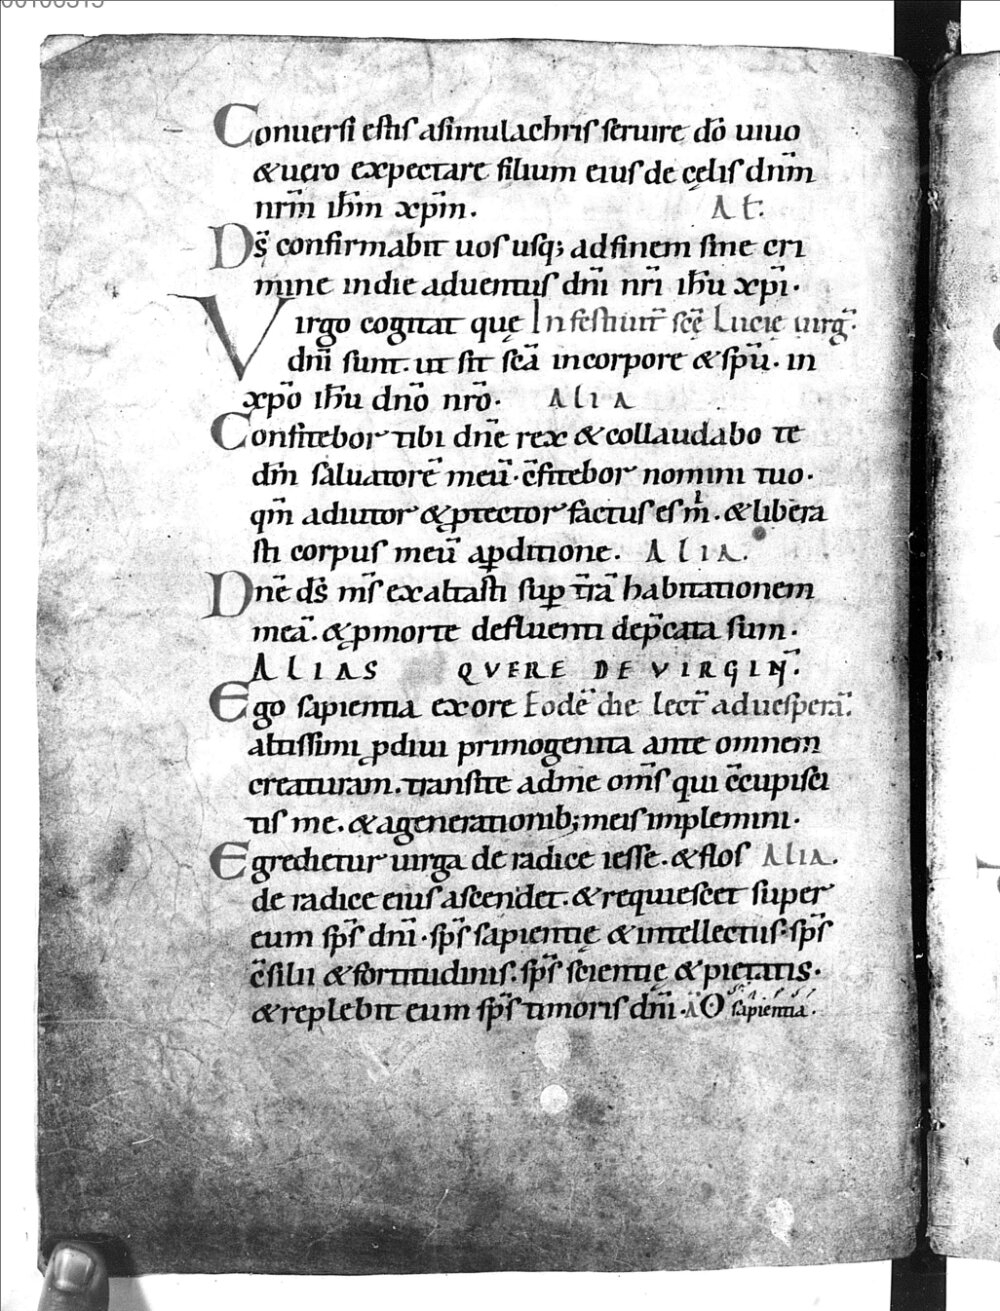 00100313
Conuersi estis asimulachris seruire dō uiuo
&uero expectare filium eius de cęlis dnm̄
nrm̄ ihm̄ xpm̄. At.
Ds̄ confirmabit uos usq; adfinem sine cri
mine indie aduentus dnī nrī ihū xpī.
Virgo cogitat quę In festiuit̄ scę̄ Lucie uirḡ.
dnī sunt. ut sit scā incorpore & spū. in
xpō ihū dnō nrō. Alia
Confitebor tibi dnē rex & collaudabo te
dm̄ saluatorē meū. c̄fitebor nomini tuo.
qm̄ adiutor & ꝓtector factus es m̄. & libera
sti corpus meū aꝑditione. Alia.
Dnē ds̄ ms̄ exaltasti suꝑ t̄rā habitationem
meā. & ꝓmorte defluenti dep̄cata sum.
ALIAS QVERE DE VIRGIN̄.
Ego sapientia exore Eodē die lect̄ aduesperā.
altissimi ꝓdiui primogenita ante omnem
creaturam. transite adme om̄s qui c̄cupisci
tis me. & agenerationib; meis implemini.
Egredietur uirga de radice iesse. & flos Alia.
de radice eius ascendet. & requiescet super
eum sps̄ dnī. sps̄ sapientię & intellectus. sps̄
c̄silii & fortitudinis. sps̄ scientię & pietatis.
& replebit eum sps̄ timoris dnī. A O sapientia.